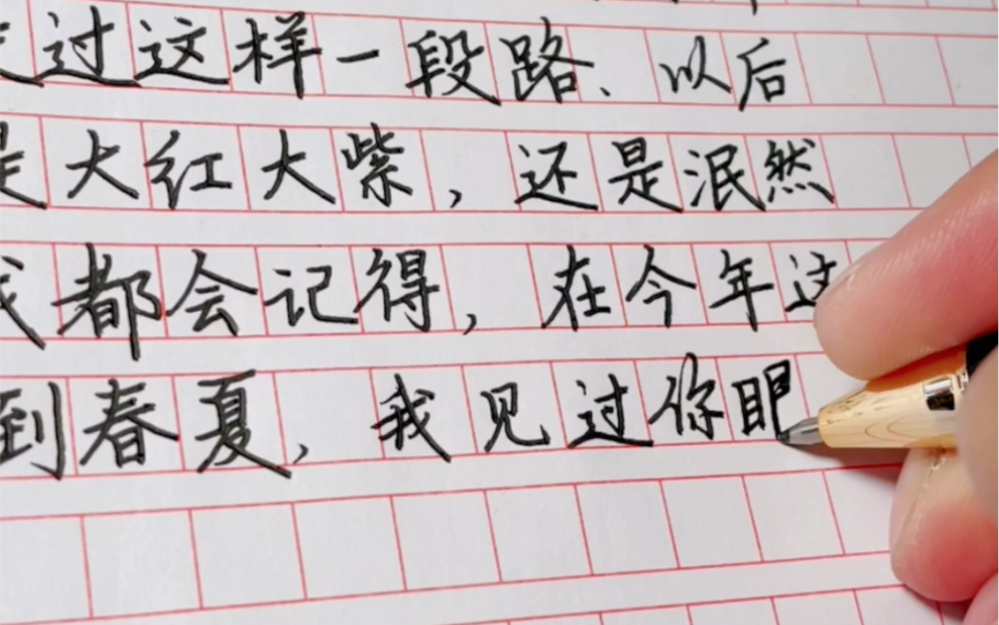 过这样一段路、以后
是大红大紫，还是泯然
我都会记得，在今年这
到春夏，我见过你眼